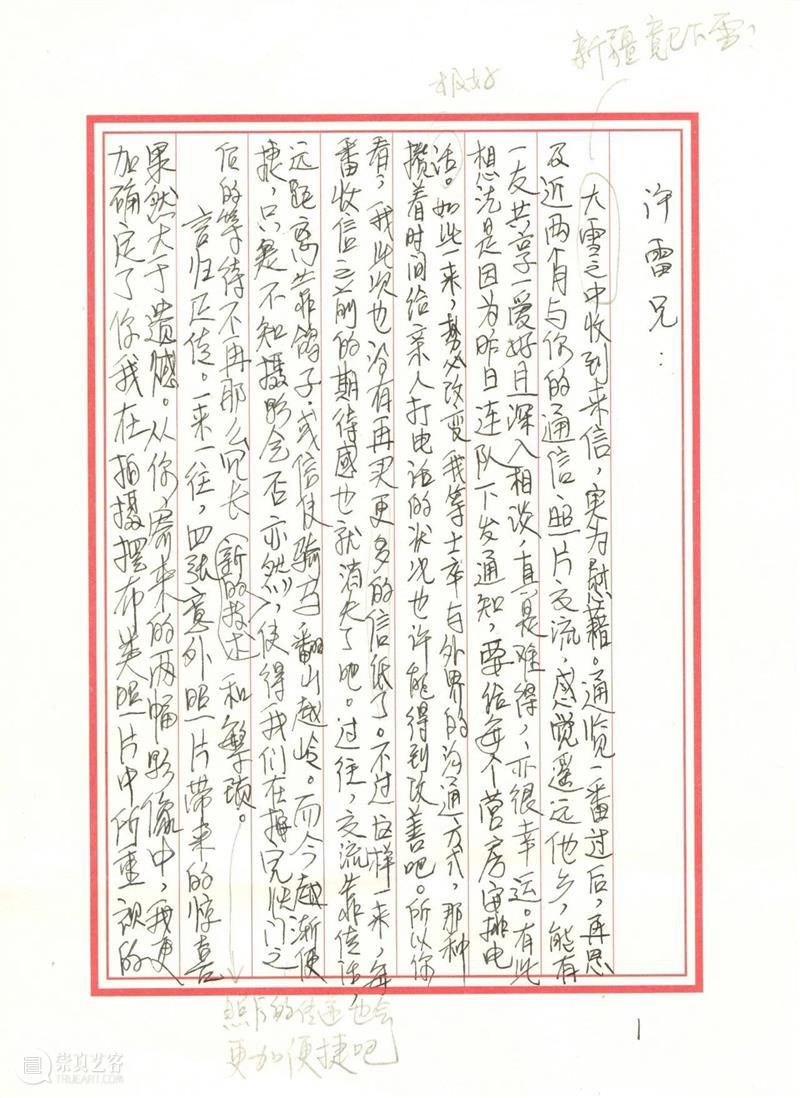 新疆竟已大雪？
极好
许雷兄：
大雪之中收到来信，实为慰藉。通览一番过后，再思
及近两个月与你的通信、照片交流，感觉遥远他乡，能有
一友共享一爱好且深入相谈，真是难得，亦很幸运。有此
想法是因为昨日连队下发通知，要给每个营房安排电
话。如此一来，势必改变我等士卒与外界的沟通方式，那种
攒着时间给亲人打电话的状况也许能得到改善吧。所以你
看，我此次也没有再买更多的信纸了。不过这样一来，每
番收信之前的期待感也就消失了吧。过往，交流靠传话，
远距离靠鸽子，或信使骑马，翻山越岭。而今越渐便
捷，只是不知摄影会否亦然，使得我们在按完快门之
后的等待不再那么冗长（新的技术）和繁琐。
言归正传。一来一往，四张意外照片带来的惊喜
果然大于遗憾。从你寄来的两幅影像中，我更
加确定了你我在拍摄摆布类照片中所重视的
照片的传递也会
更加便捷吧
1
崇真艺客
TRUEART.COM